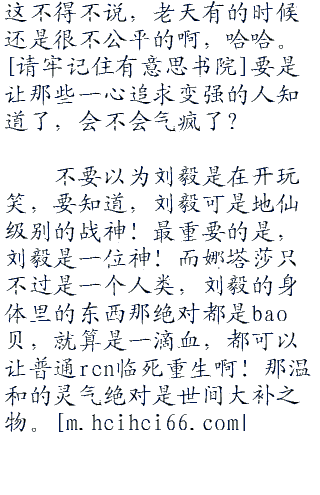 这不得不说，老天有的时候
还是很不公平的啊，哈哈。
[请牢记住有意思书院]要是
让那些一心追求变强的人知
道了，会不会气疯了？
不要以为刘毅是在开玩
笑，要知道，刘毅可是地仙
级别的战神！最重要的是，
刘毅是一位神！而娜塔莎只
不过是一个人类，刘毅的身
体里的东西那绝对都是bao
贝，就算是一滴血，都可以
让普通rcn临死重生啊！那温
和的灵气绝对是世间大补之
物。[m.hcihci66.com|